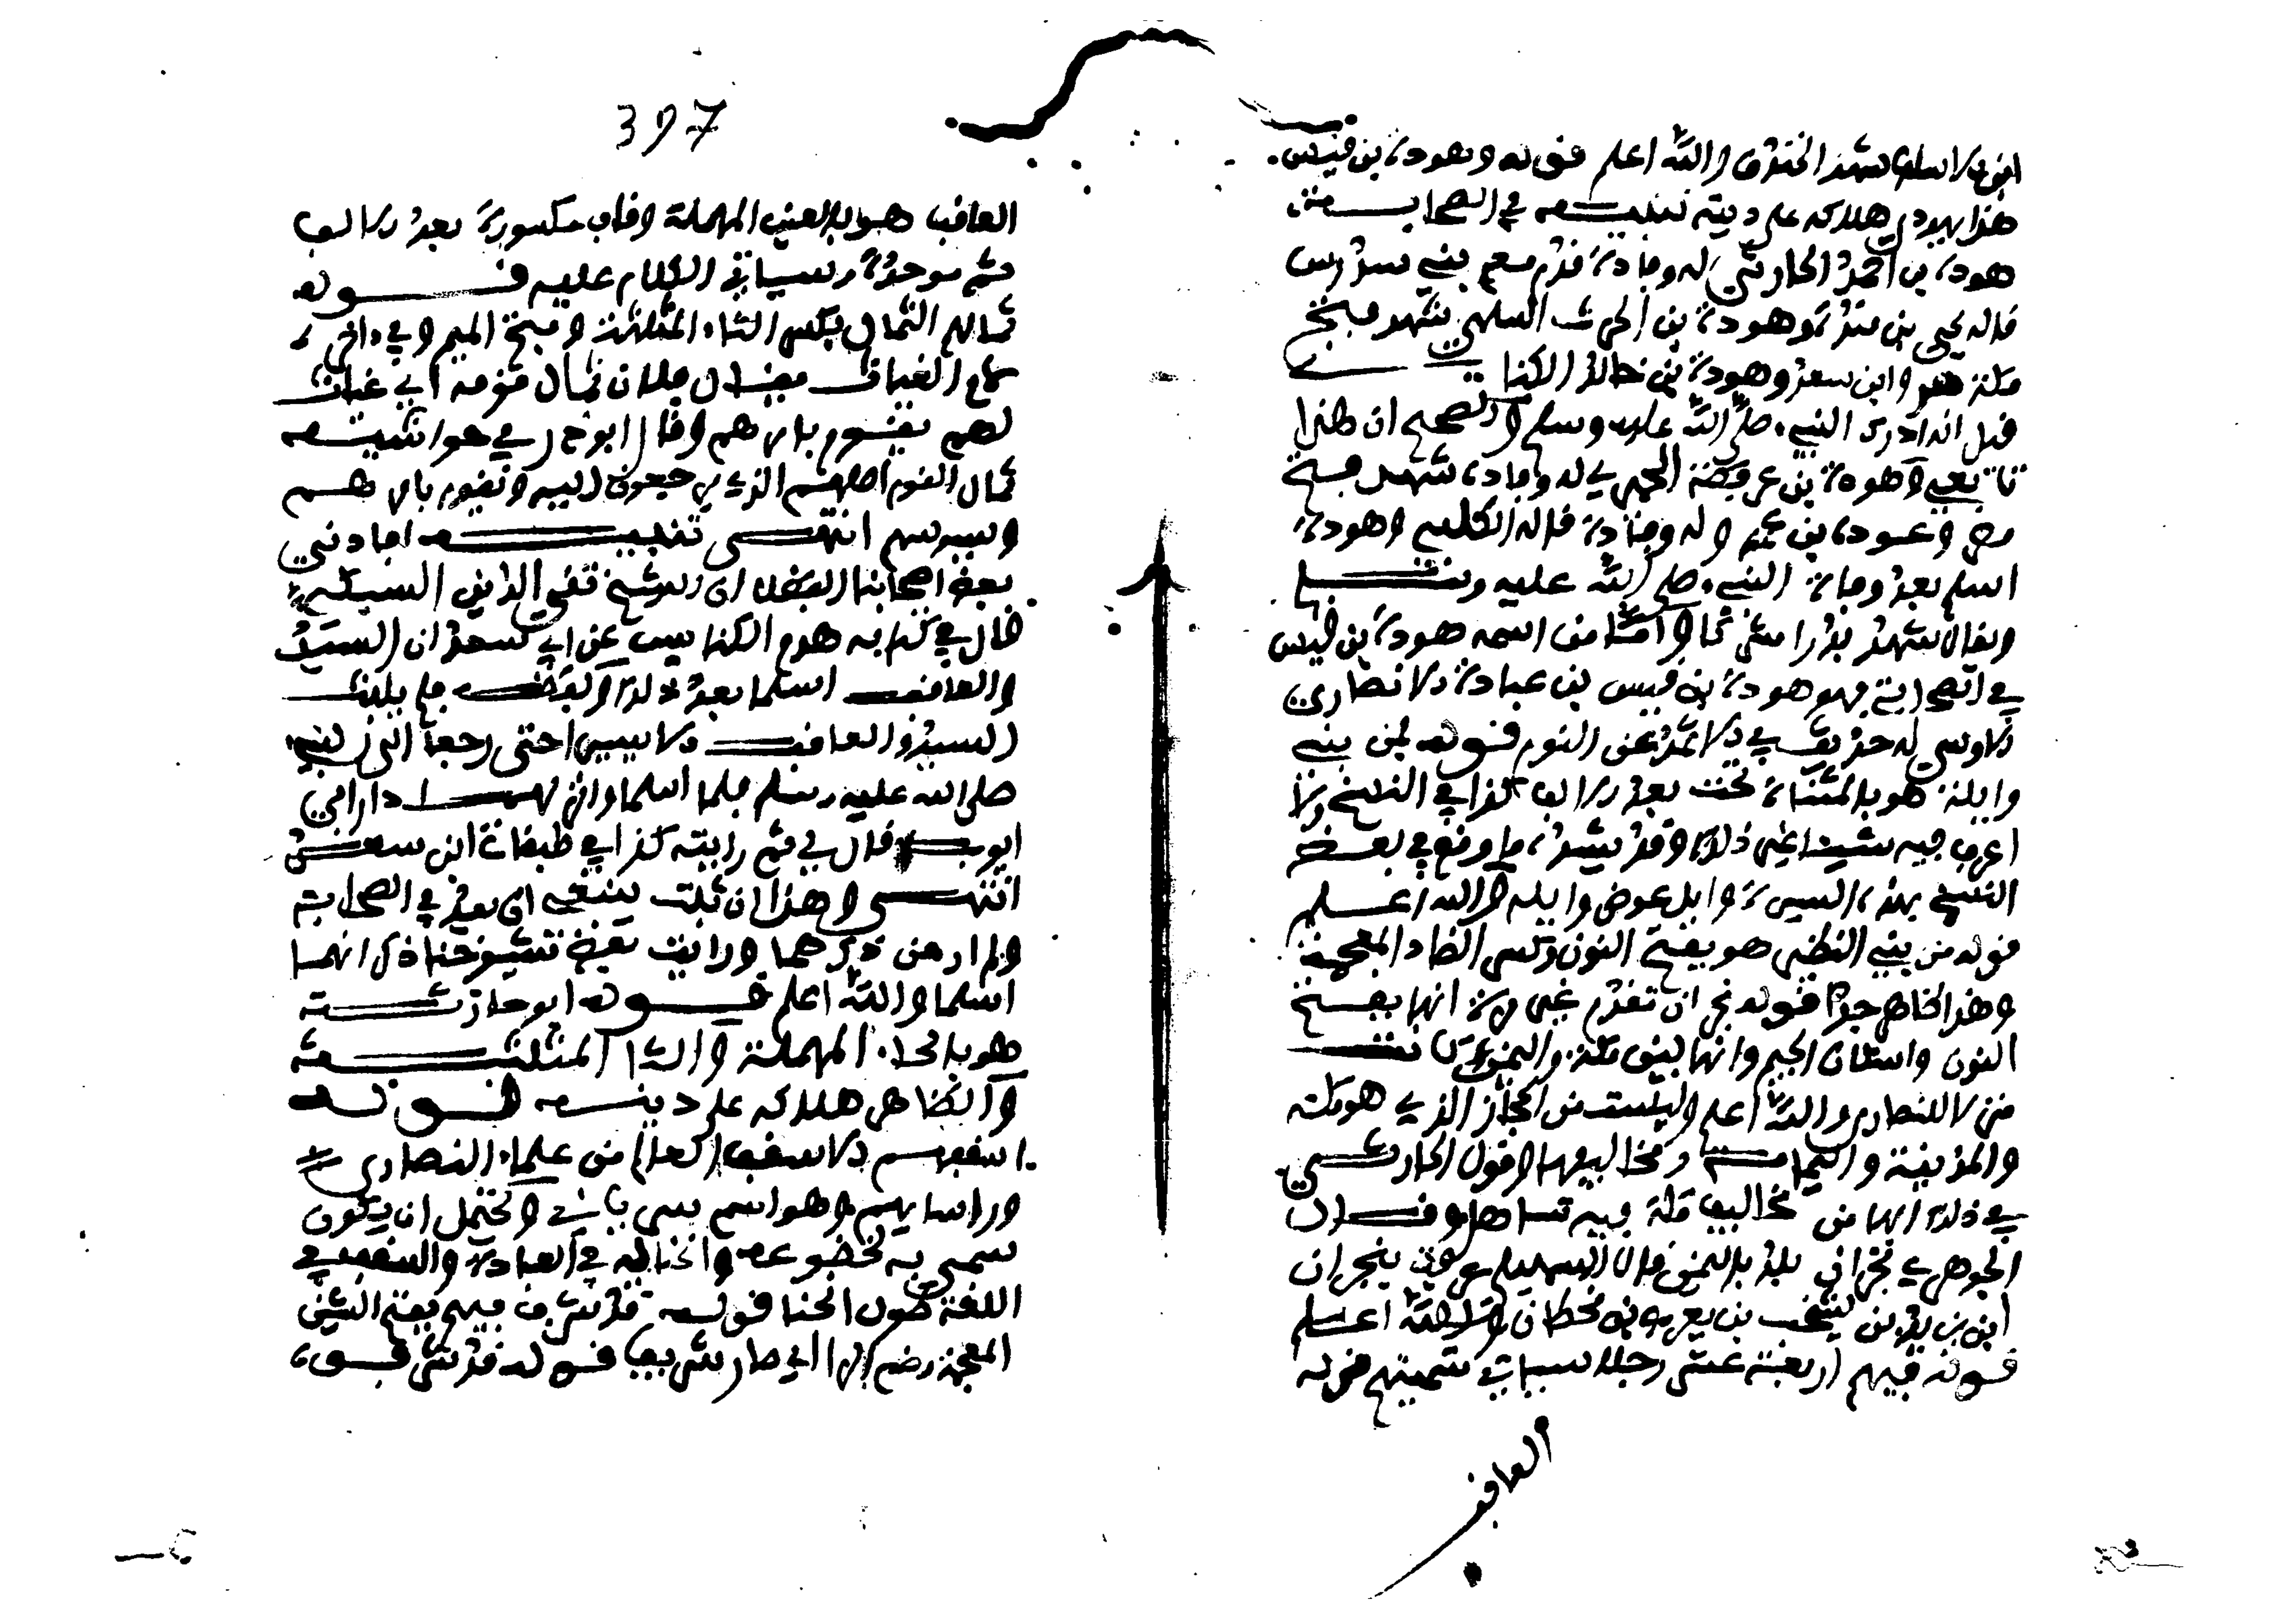 397
ابن الاسلت شهد الخندق والله اعلم قوله وهودة بن قيس
هذا يهودي هلاكه على دينه تنبيه في الصحابة
هودة بن احمد الحارثي له وفادة قدم مع بني سدوس
قاله يحيى بن مندة وهودة بن الحرث السلمي شهد فتح
مكة هو وابن سعد وهودة بن خالد الكناني
قيل انه ادرك النبي صلى الله عليه وسلم والصحيح ان هذا
تابعي وهودة بن عرفطة الحميري له وفادة شهد فتح
مصر وهودة بن عمرو له وفادة قاله الكلبي وهودة
اسلم بعد وفاة النبي صلى الله عليه وسلم
ويقال شهد بدرا مشركا واما من اسمه هودة بن قيس
في الصحابة فهو هودة بن قيس بن عبادة الانصاري
الاوسي له حديث في الاثمد عند النوم قوله من بني
وايلة هو بالمثناة تحت بعد الالف كذا في النسخ ولا
اعرف فيه شيئا غير ذلك وقد يشد ما وقع في بعض
النسخ بهذه السيرة وابل عوض وايلة والله اعلم
قوله من بني النظير هو بفتح النون وكسر الضاد المعجمة
وهذا ظاهر جدا قوله نجران تقدم غير مرة انها بفتح
النون واسكان الجيم وانها بين مكة واليمن كانت
منزلا للنصارى والله اعلم وليست من الحجاز الذي هو مكة
والمدينة واليمامة ومخاليفها وقول الحارثي
في ذلك انها من مخاليف مكة فيه تساهل وقال
الجوهري نجران بلد باليمن قال السهيلي عرفت بنجران
ابن زيد بن يشجب بن يعرب بن قحطان والله اعلم
قوله فيهم اربعة عشر رجلا سياتي تسميتهم قوله
العاقب
العاقب هو بالعين المهملة وقاف مكسورة بعد الالف
ثم موحدة وسياتي الكلام عليه قوله
ثمالهم الثمال بكسر الثاء المثلثة وفتح الميم وفي اخره
لام الغياث يقال فلان ثمال قومه اي غياث
لهم يقوم بامرهم وقال ابوذر في حواشيه
ثمال القوم اصلهم الذي يرجعون اليه ويقوم بامرهم
وسيرهم انتهى تنبيه افادني
بعض اصحابنا الفضلا ان الشيخ تقي الدين السبكي
قال في كتابه هدم الكنايس عن ابن سعد ان السيد
والعاقب اسلما بعد ذلك ولفظه فلم يلبث
السيد والعاقب الا يسيرا حتى رجعا الى النبي
صلى الله عليه وسلم فلما اسلما وانزلهما دار ابي
ايوب قال في ثم رايته كذا في طبقات ابن سعد
انتهى وهذا ان ثبت ينبغي ان يعد في الصحابة
ولم ار من ذكرهما ورايت بعض شيوخنا ذكر انهما
اسلما والله اعلم قوله ابو حارثة
هو بالحاء المهملة والثا المثلثة
والظاهر هلاكه على دينه قوله
اسقفهم الاسقف العالم من علماء النصارى
وراسايهم وهو اسم سرياني ويحتمل ان يكون
سمي به لخضوعه وانحنائه في العبادة والسقف في
اللغة طول انحنا قوله قد شرف فيهم بفتح الشين
المعجمة وضم الرا اي صار شريفا قوله قد شرفوه